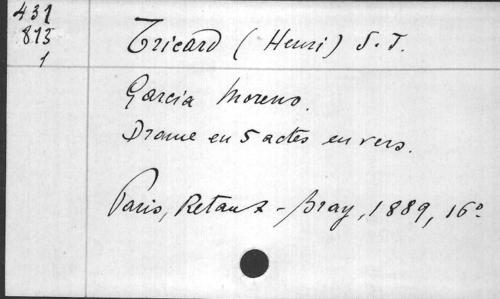 431
813
1
Tricard (Henri) S. J.
Garcia Moreno.
Drame en 5 actes en vers.
Paris, Retaux-Bray, 1889, 16º